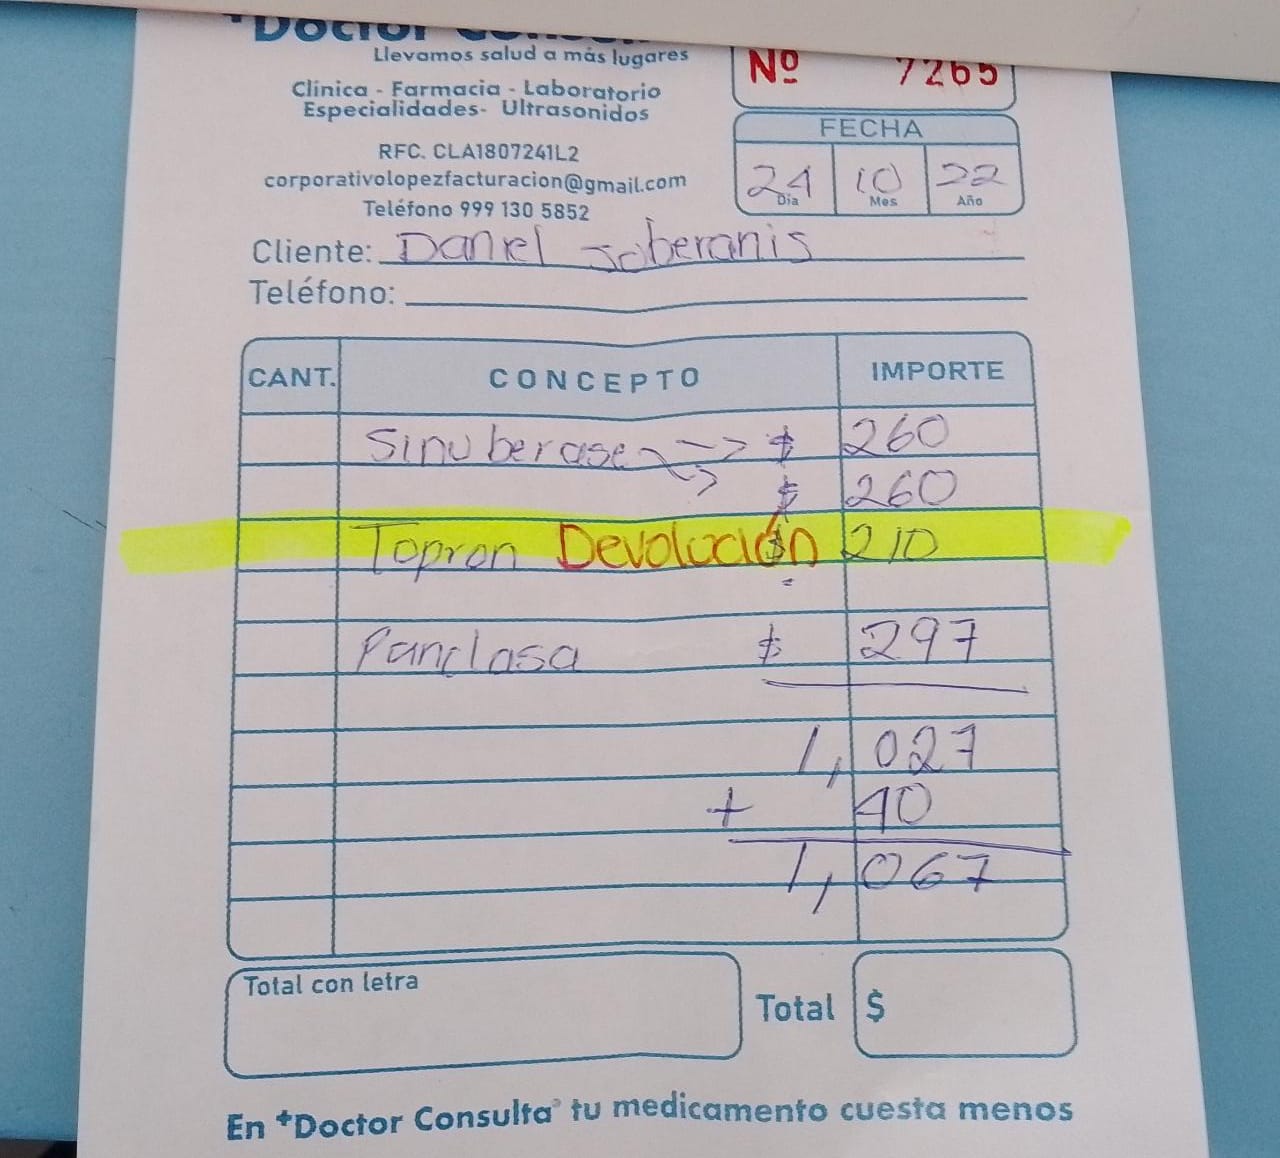 +Doctor Consulta
Llevamos salud a más lugares
Clínica - Farmacia - Laboratorio
Especialidades- Ultrasonidos
RFC. CLA1807241L2
corporativolopezfacturacion@gmail.com
Teléfono 999 130 5852
Nº 7265
FECHA
24 10 22
Día Mes Año
Cliente: Daniel Soberanis
Teléfono:
CANT. CONCEPTO IMPORTE
Sinuberase --> $ 260
$ 260
Topron Devolución $ 210
Panclasa $ 297
1,027
+ 40
1,067
Total con letra
Total $
En +Doctor Consulta® tu medicamento cuesta menos